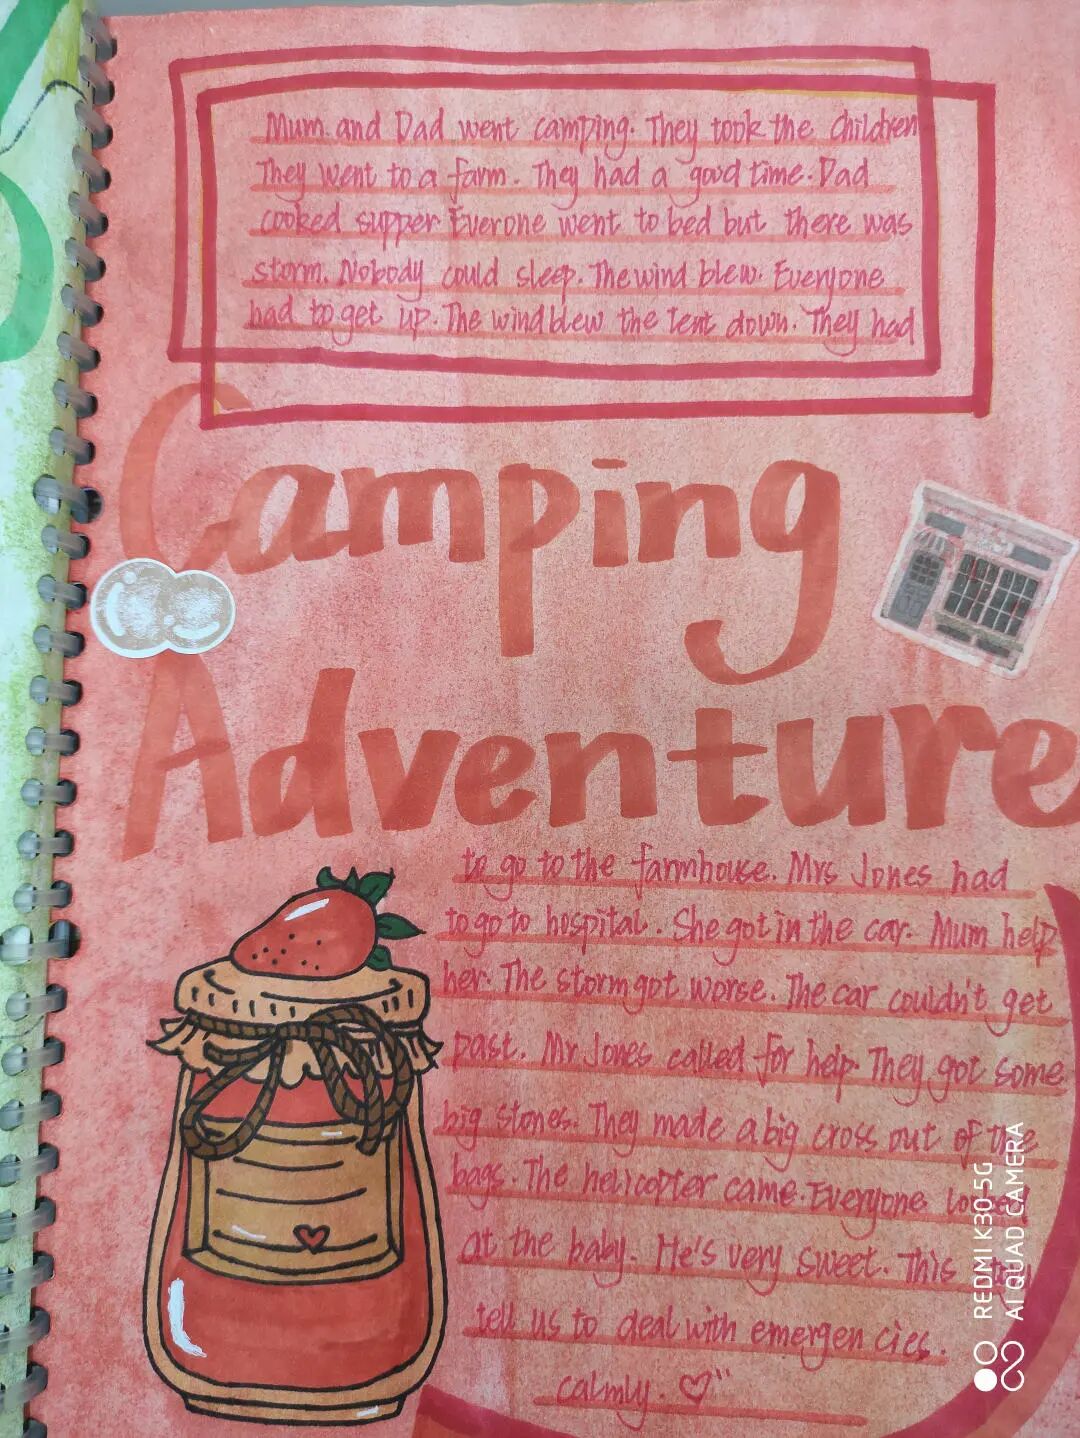 Mum and Dad went camping. They took the children
They went to a farm. They had a good time. Dad
cooked supper Everone went to bed but there was
storm. Nobody could sleep. The wind blew. Everyone
had to get up. The wind blew the tent down. They had
Camping
Adventure
to go to the farmhouse. Mrs Jones had
to go to hospital. She got in the car. Mum help
her. The storm got worse. The car couldn't get
past. Mr Jones called for help. They got some
big stones. They made a big cross out of the
bags. The helicopter came. Everyone
at the baby. He's very sweet. This
tell us to deal with emergencies.
calmly. ♡"
REDMI K30 5G
AI QUAD CAMERA